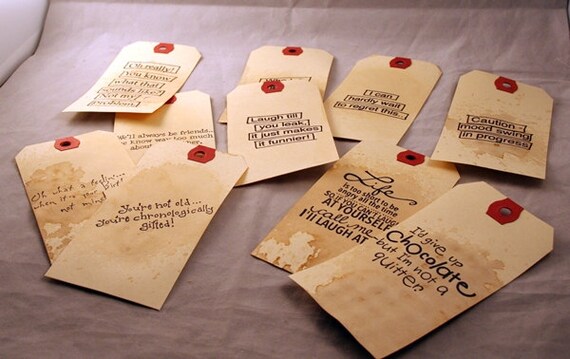 Oh really?
You know
what that
sounds like?
Not my
problem.
I can
hardly wait
to regret this..
Caution -
mood swing
in progress
Laugh till
you leak,
it just makes
it funnier!
We'll always be friends..
know way too much
about
Oh what a
when it's your
not mine!
You're not old...
you're chronologically
gifted!
Life
is too short to be
angry all the time
so if you can't laugh
AT YOURSELF
call me
I'll LAUGH AT
I'd give up
CHOcolate
but I'm not a
quitter?